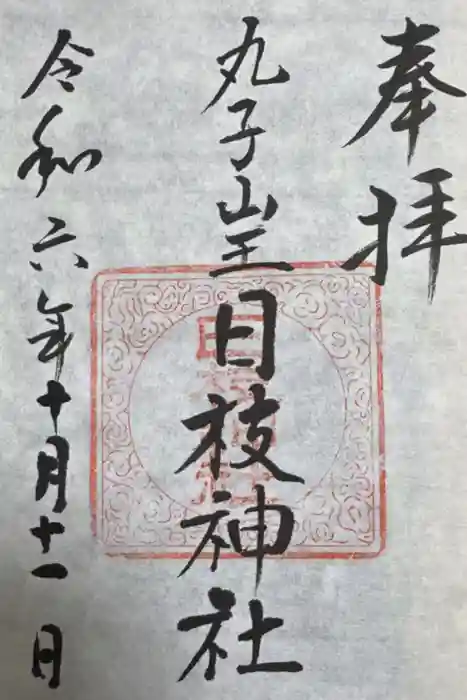 奉拝
丸子山王日枝神社
令和六年十月十一日